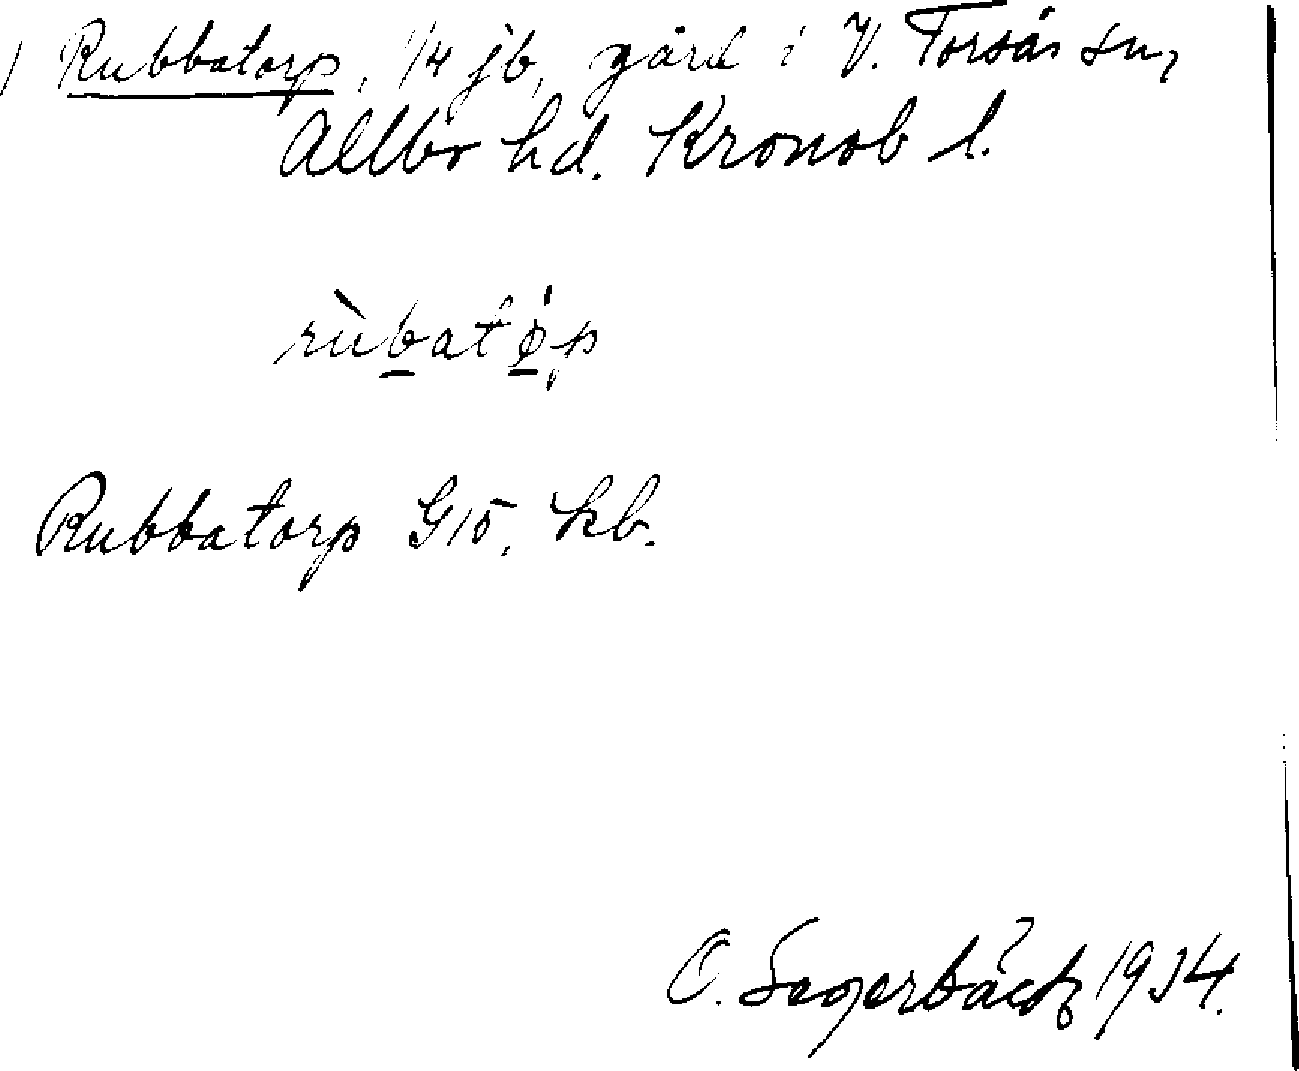 Rubbatorp, 1/4 jb, gård i V. Torsås sn,
Allbo hd. Kronob l.
rùbatǿp
Rubbatorp G15, kb.
O. Sagerbäck 1934.